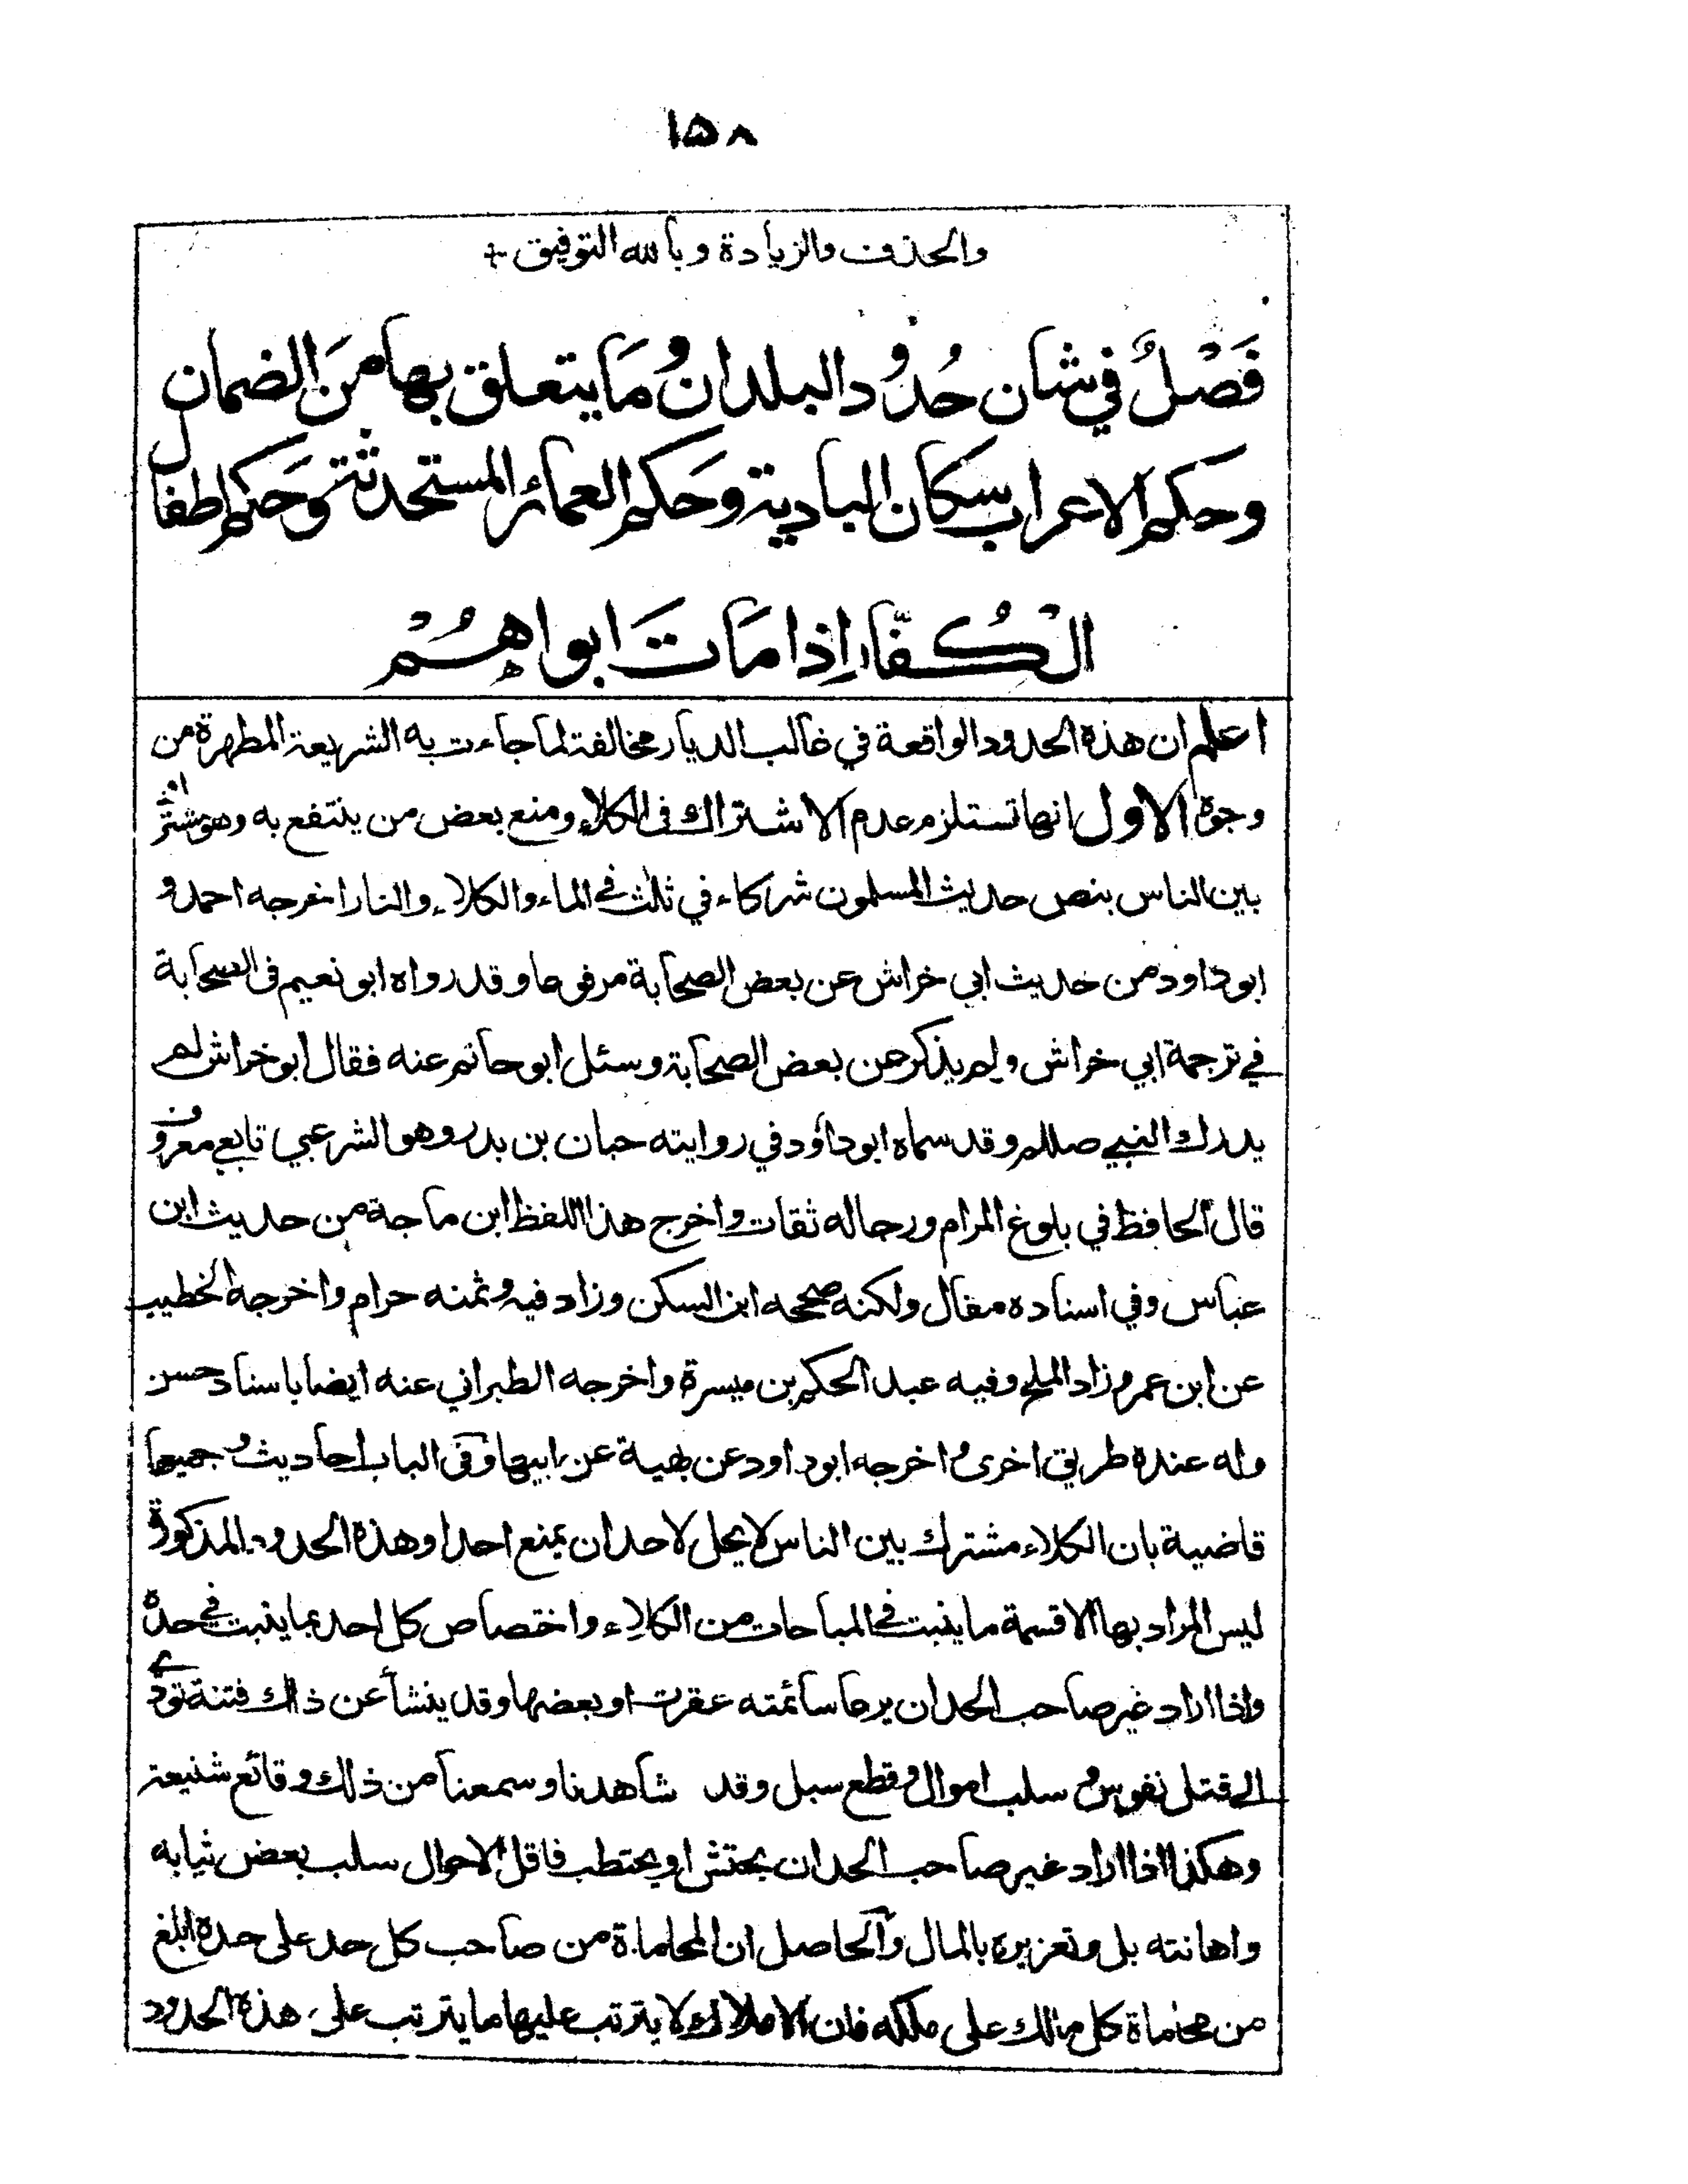 ١٥٨
والحذف والزيادة وبالله التوفيق +
فَصْلٌ في شان حُدُود البلدان وَمَا يتعلق بها مِنَ الضمان
وحكم الاعراب سكان البادية وحكم العمائر المستحدثة وحكم اطفال
الْكُفّار اِذا مَاتَ ابواهُمْ
اعلم ان هذه الحدود الواقعة في غالب الديار مخالفة لما جاءت به الشريعة المطهرة من
وجوه الاول انها تستلزم عدم الاشتراك في الكلاء ومنع بعض من ينتفع به وهو مشترك
بين الناس بنص حديث المسلمون شركاء في ثلث في الماء والكلاء والنار اخرجه احمد و
ابو داود من حديث ابي خراش عن بعض الصحابة مرفوعا وقد رواه ابو نعيم في الصحابة
في ترجمة ابي خراش ولم يذكر عن بعض الصحابة وسئل ابو حاتم عنه فقال ابو خراش لم
يدرك النبي صللم وقد سماه ابو داؤد في روايته حبان بن بدر وهو الشرعبي تابعي معروف
قال الحافظ في بلوغ المرام ورجاله ثقات واخرج هذا اللفظ ابن ماجة من حديث ابن
عباس وفي اسناده مقال ولكنه صححه ابن السكن وزاد فيه وثمنه حرام واخرجه الخطيب
عن ابن عمر وزاد الملح وفيه عبد الحكم بن ميسرة واخرجه الطبراني عنه ايضا باسناد حسن
وله عنده طريق اخرى واخرجه ابو داود عن بهية عن ابيها وفي الباب احاديث وجميعها
قاضية بان الكلاء مشترك بين الناس لا يحل لاحد ان يمنع احدا وهذه الحدود المذكورة
ليس المراد بها الا قسمة ما ينبت في المباحات من الكلاء واختصاص كل احد بما ينبت في حده
واذا اراد غير صاحب الحد ان يرعا سائمته عقرت او بعضها وقد ينشأ عن ذلك فتنة تودي
الى قتل نفوس و سلب اموال و قطع سبل وقد شاهدنا وسمعنا من ذلك وقائع شنيعة
وهكذا اذا اراد غير صاحب الحد ان يحتش او يحتطب فاقل الاحوال سلب بعض ثيابه
واهانته بل وتعزيره بالمال والحاصل ان المحاماة من صاحب كل حد على حده ابلغ
من محاماة كل مالك على ملكه فان الاملاك لا يترتب عليها ما يترتب على هذه الحدود